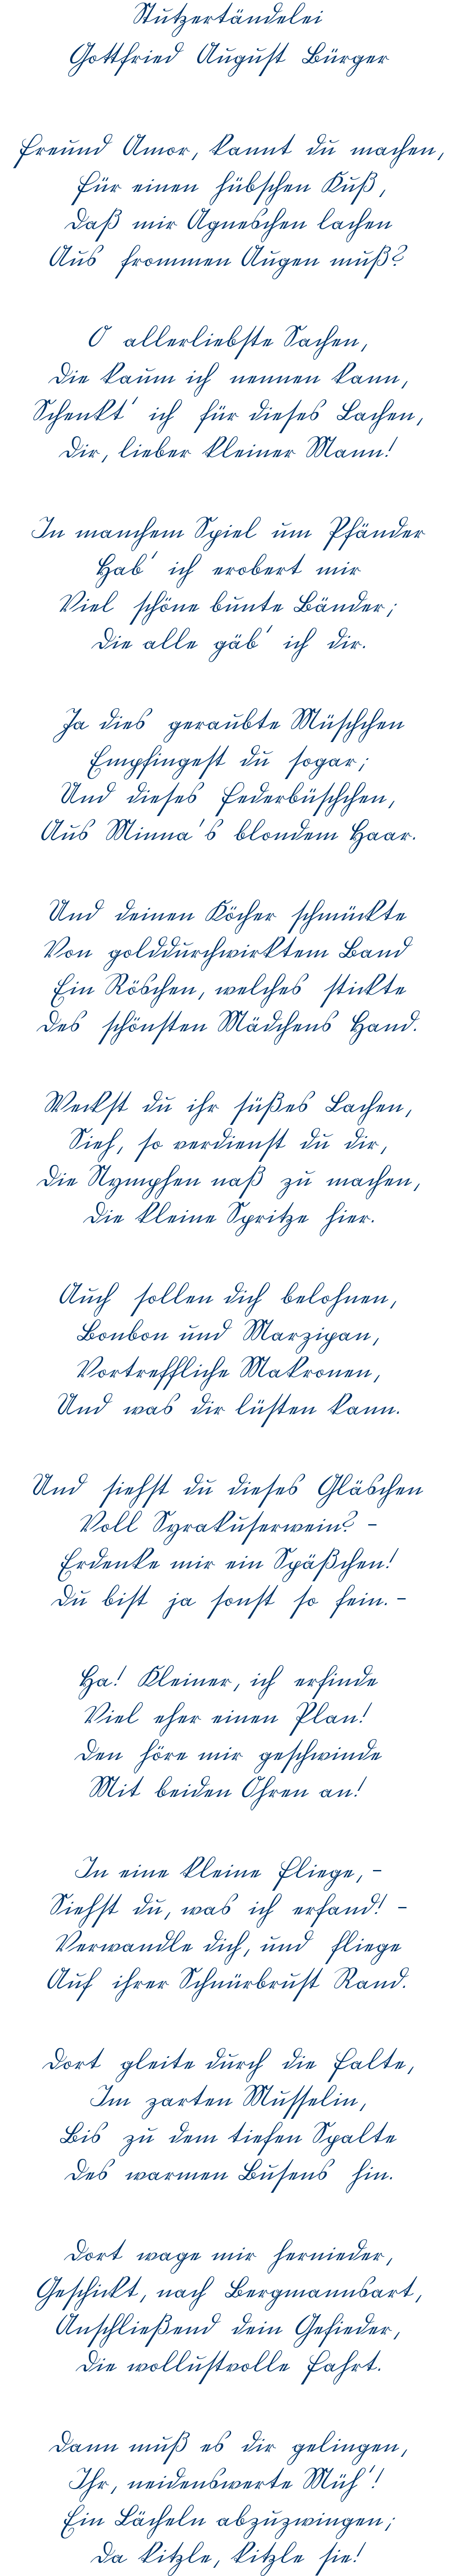 Stutzertändelei
Gottfried August Bürger
Freund Amor, kannt du machen,
Für einen hübschen Kuß,
Daß mir Agneschen lachen
Aus frommen Augen muß?
O allerliebste Sachen,
Die kaum ich nennen kann,
Schenkt' ich für dieses Lachen,
Dir, lieber kleiner Mann!
In manchem Spiel um Pfänder
Hab' ich erobert mir
Viel schöne bunte Bänder;
Die alle gäb' ich dir.
Ja dies geraubte Müschchen
Empfingest du sogar;
Und dieses Federbüschchen,
Aus Minna's blondem Haar.
Und deinen Köcher schmückte
Von golddurchwirktem Band
Ein Röschen, welches stickte
Des schönsten Mädchens Hand.
Weckst du ihr süßes Lachen,
Sieh, so verdienst du dir,
Die Nymphen naß zu machen,
Die kleine Spritze hier.
Auch sollen dich belohnen,
Bonbon und Marzipan,
Vortreffliche Makronen,
Und was dir lüsten kann.
Und siehst du dieses Gläschen
Voll Syrakuserwein? -
Erdenke mir ein Späßchen!
Du bist ja sonst so fein. -
Ha! Kleiner, ich erfinde
Viel eher einen Plan!
Den höre mir geschwinde
Mit beiden Ohren an!
In eine kleine Fliege, -
Siehst du, was ich erfand! -
Verwandle dich, und fliege
Auf ihrer Schnürbrust Rand.
Dort gleite durch die Falte,
Im zarten Musselin,
Bis zu dem tiefen Spalte
Des warmen Busens hin.
Dort wage mir hernieder,
Geschickt, nach Bergmannsart,
Anschließend dein Gefieder,
Die wollustvolle Fahrt.
Dann muß es dir gelingen,
Ihr, neidenswerte Müh'!
Ein Lächeln abzuzwingen;
Da kitzle, kitzle sie!